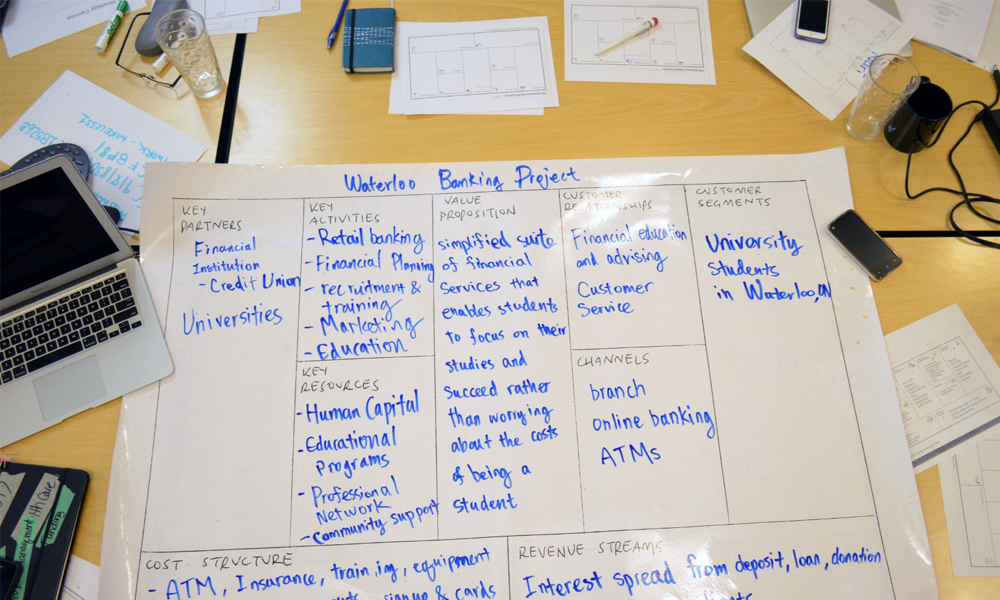 Waterloo Banking Project
KEY
PARTNERS
Financial
Institution
- Credit Union
Universities
KEY
ACTIVITIES
- Retail banking
- Financial Planning
- recruitment &
training
- Marketing
- Education
KEY
RESOURCES
- Human Capital
- Educational
Programs
- Professional
Network
- Community support
VALUE
PROPOSITION
simplified suite
of financial
Services that
enables students
to focus on their
studies and
succeed rather
than worrying
about the costs
of being a
student
CUSTOMER
RELATIONSHIPS
Financial education
and advising
Customer
Service
CHANNELS
branch
online banking
ATMs
CUSTOMER
SEGMENTS
University
Students
in Waterloo, ON
COST STRUCTURE
- ATM, Insurance, training, equipment
signup & cards
REVENUE STREAMS
Interest spread from deposit, loan, donation